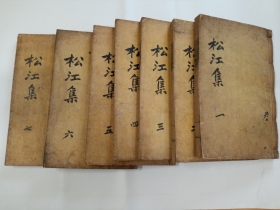 松江集 一
松江集 二
松江集 三
松江集 四
松江集 五
松江集 六
松江集 七